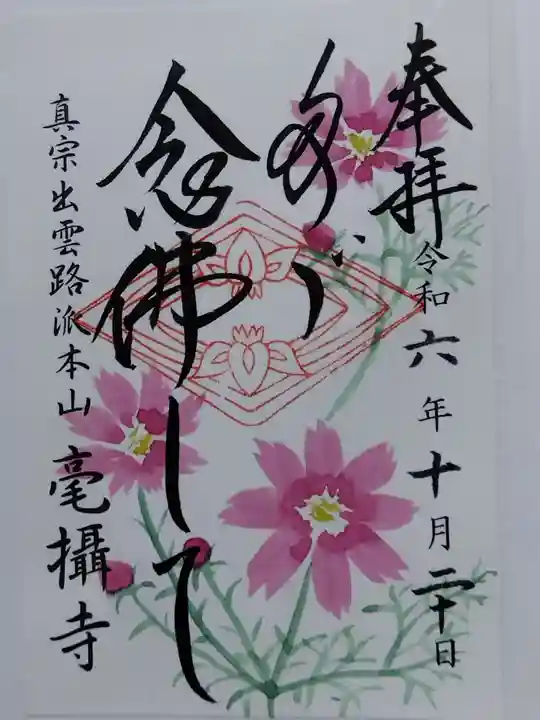 奉拝
令和六年十月二十日
念佛して
真宗出雲路派本山毫攝寺